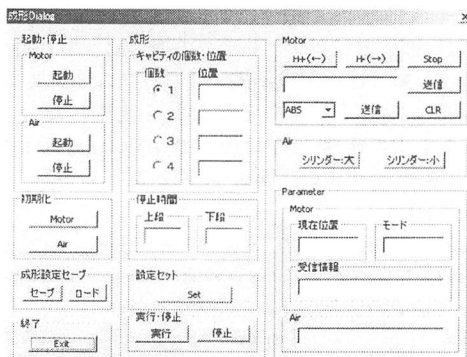 成形Dialog
起動・停止
Motor
起動
停止
Air
起動
停止
初期化
Motor
Air
成形設定セーブ
セーブ ロード
終了
Exit
成形
キャビティの個数・位置
個数 位置
1
2
3
4
停止時間
上段 下段
設定セット
Set
実行・停止
実行 停止
Motor
H+(←) H+(→) Stop
送信
ABS 送信 CLR
Air
シリンダー:大 シリンダー:小
Parameter
Motor
現在位置 モード
受信情報
Air